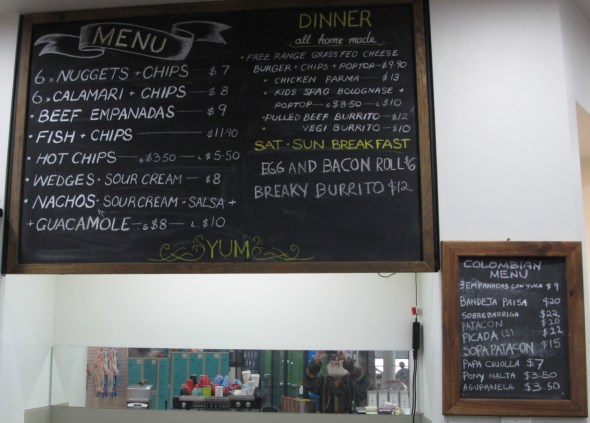 MENU
6x NUGGETS + CHIPS $7
6x CALAMARI + CHIPS $8
• BEEF EMPANADAS $9
• FISH + CHIPS $11.90
• HOT CHIPS S $3.50 L $5.50
• WEDGES • SOUR CREAM $8
• NACHOS • SOURCREAM • SALSA +
+ GUACAMOLE S $8 L $10
YUM
DINNER
all home made
• FREE RANGE GRASS FED CHEESE
BURGER + CHIPS + POPTOP $9.90
• CHICKEN PARMA $13
• KIDS SPAG BOLOGNASE +
POPTOP S $8.50 L $10
• PULLED BEEF BURRITO $12
• VEGI BURRITO $10
SAT • SUN BREAKFAST
EGG AND BACON ROLL $6
BREAKY BURRITO $12
COLOMBIAN
MENU
3 EMPANADAS CON YUCA $9
BANDEJA PAISA $20
SOBREBARRIGA $22
PATACON $20
PICADA (2) $22
SOPA PATACON $15
PAPA CRIOLLA $7
PONY MALTA $3.50
AGUPANELA $3.50